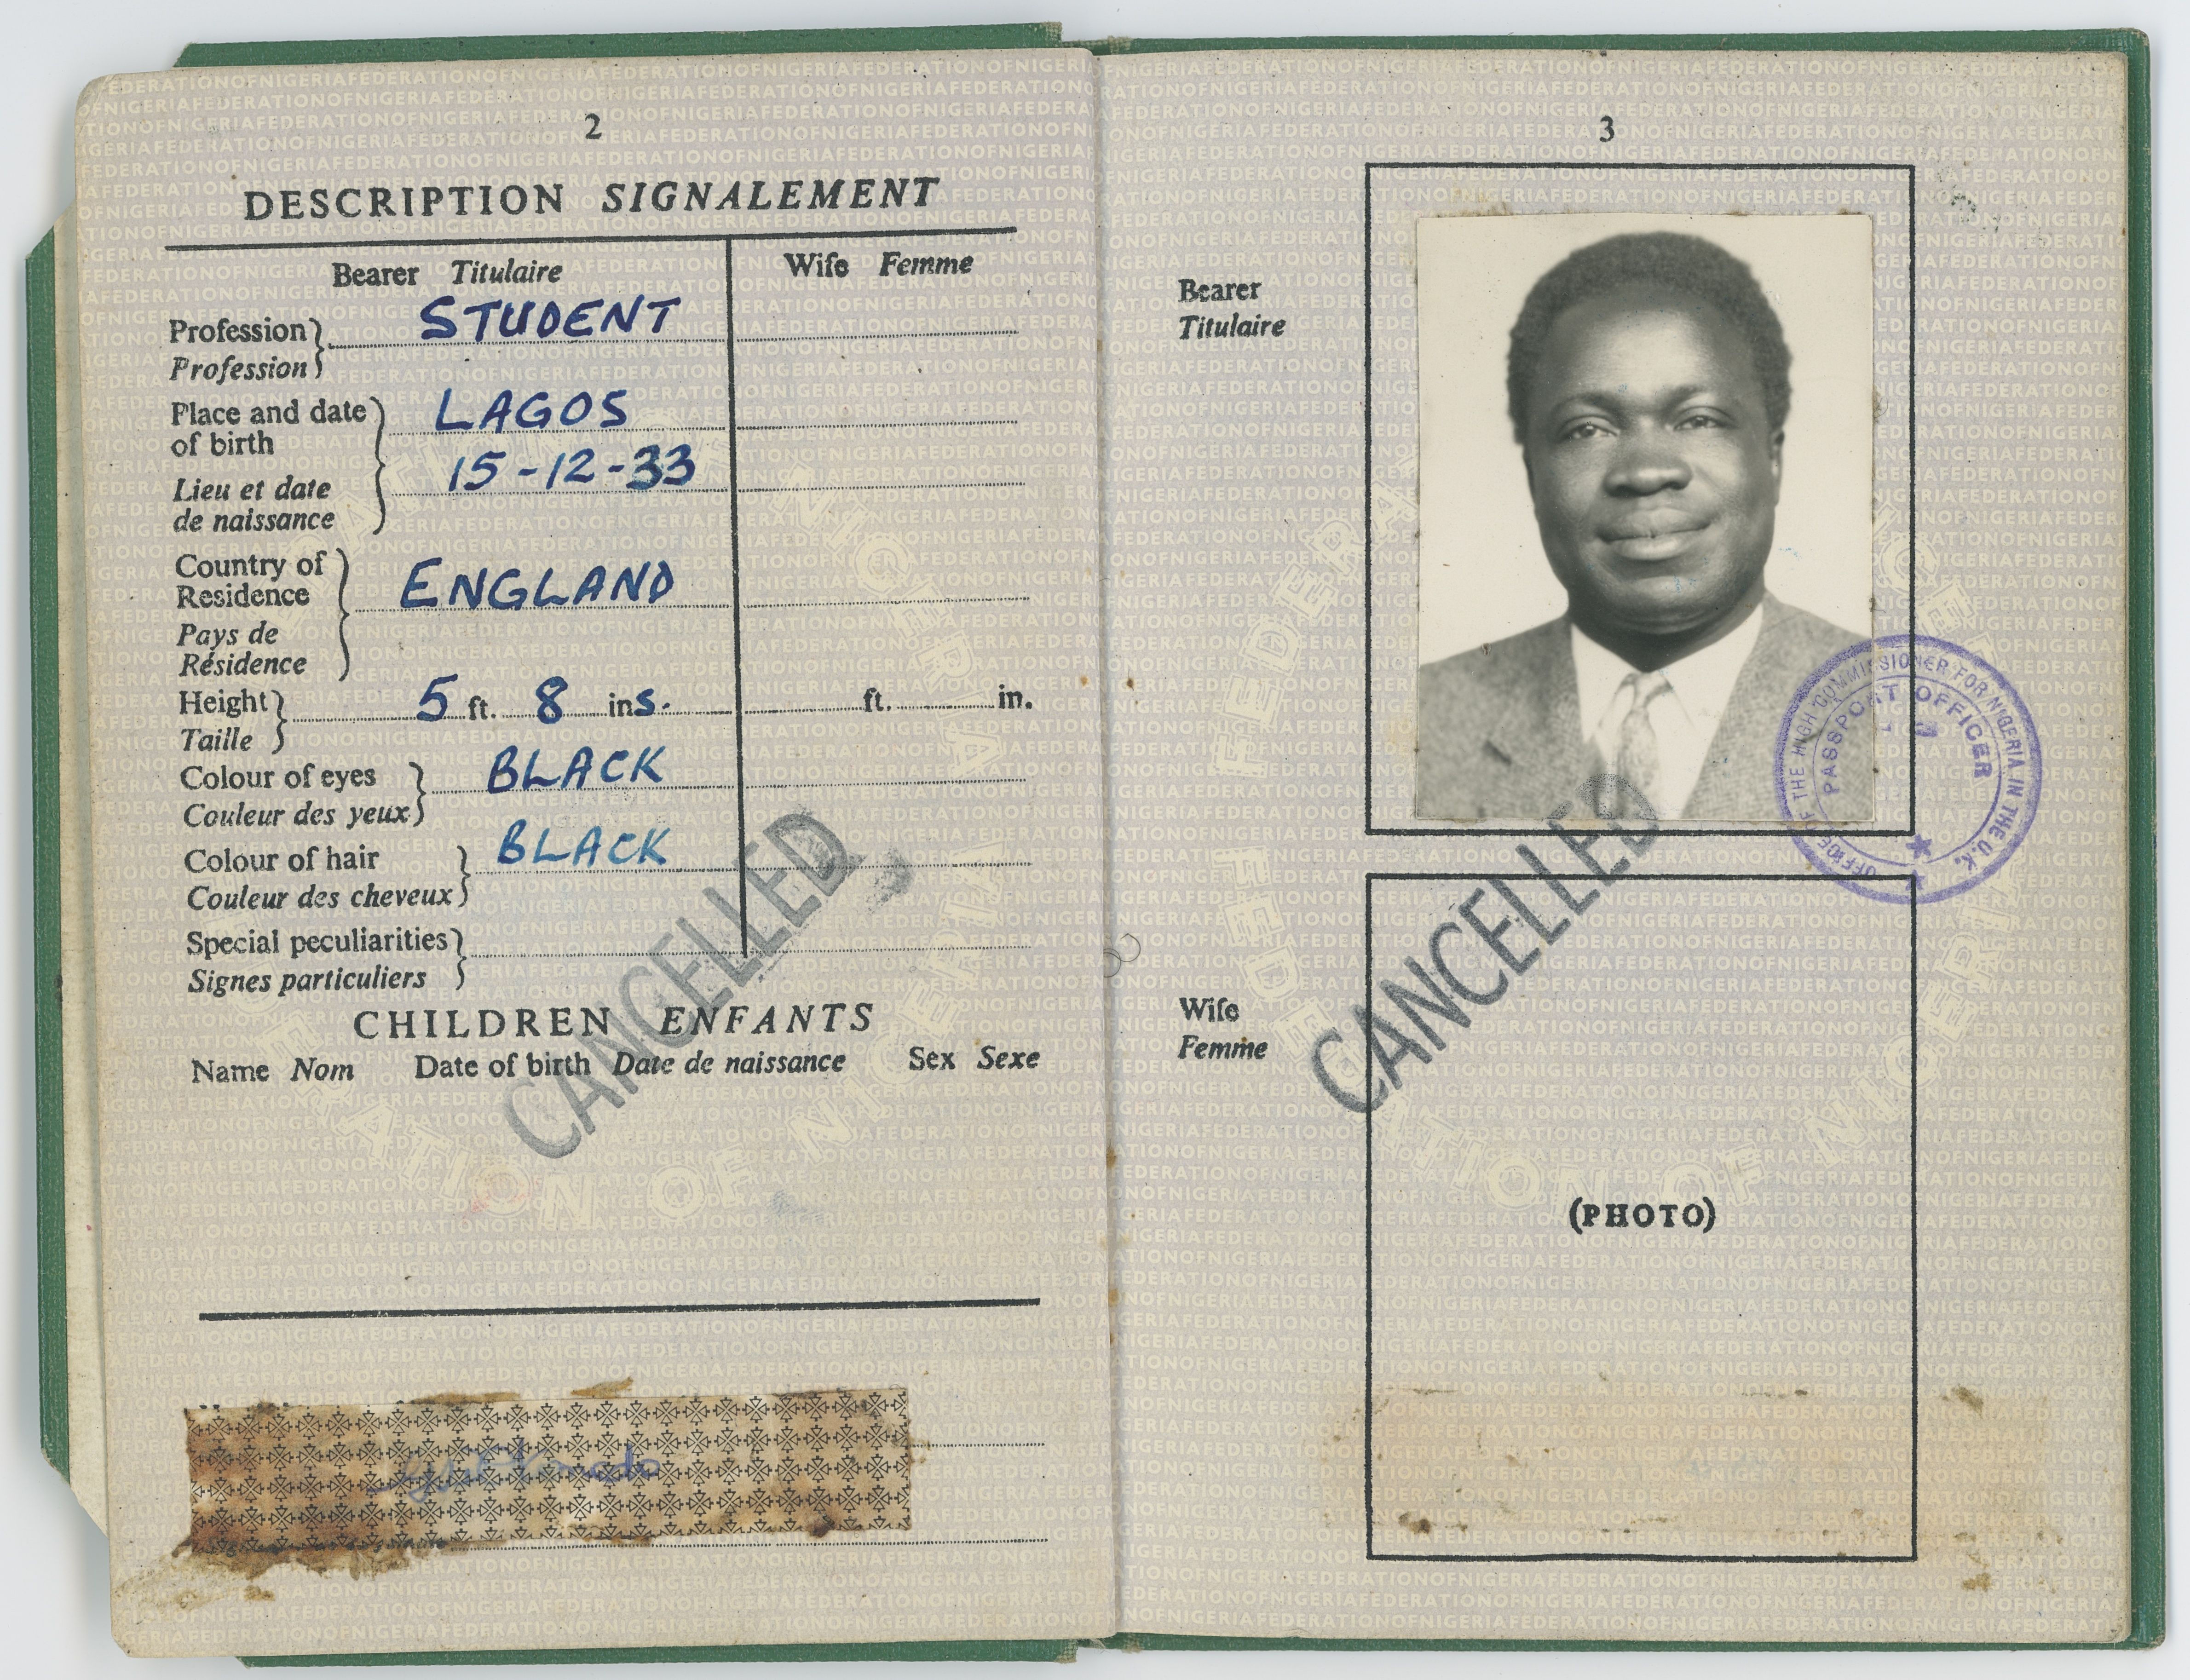 2
DESCRIPTION SIGNALEMENT
Bearer Titulaire
Wife Femme
Profession STUDENT
Profession
Place and date of birth LAGOS
15-12-33
Lieu et date de naissance
Country of Residence ENGLAND
Pays de Résidence
Height 5 ft. 8 ins. ft. in.
Taille
Colour of eyes BLACK
Couleur des yeux
Colour of hair BLACK
Couleur des cheveux
Special peculiarities
Signes particuliers
CANCELLED
CHILDREN ENFANTS
Name Nom Date of birth Date de naissance Sex Sexe
3
Bearer
Titulaire
OFFICE OF THE HIGH COMMISSIONER FOR NIGERIA IN THE U.K.
PASSPORT OFFICER
CANCELLED
Wife
Femme
(PHOTO)
FEDERATION OF NIGERIA